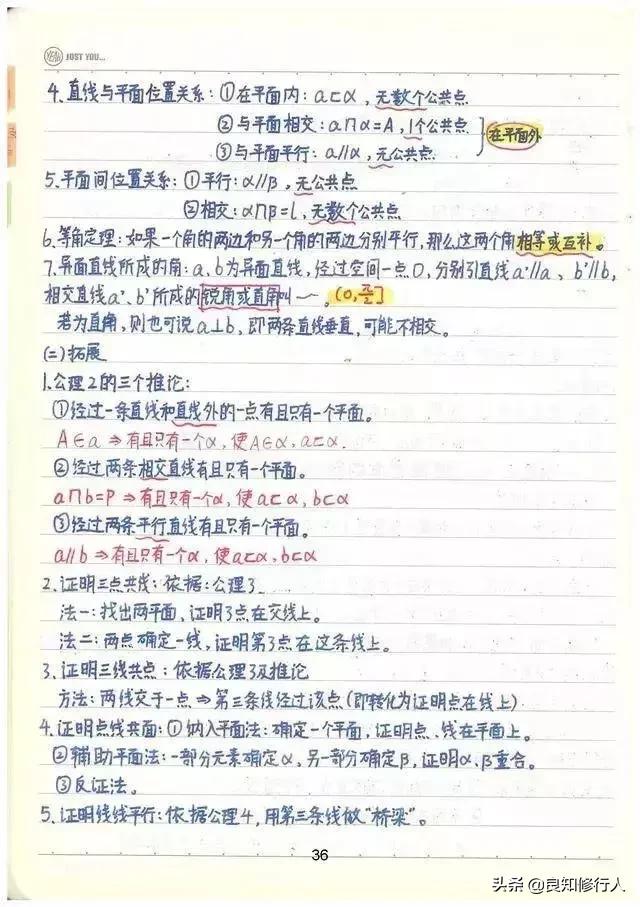 YEAH JUST YOU...
4、直线与平面位置关系：①在平面内：a⊂α，无数个公共点
②与平面相交：a∩α=A，1个公共点
在平面外
③与平面平行：a//α，无公共点.
5、平面间位置关系：①平行：α//β，无公共点
②相交：α∩β=l，无数个公共点
6、等角定理：如果一个角的两边和另一个角的两边分别平行，那么这两个角相等或互补。
7、异面直线所成的角：a、b为异面直线，经过空间一点O，分别引直线a'//a、b'//b，
相交直线a'、b'所成的锐角或直角叫~。(0,π/2]
若为直角，则也可说a⊥b，即两条直线垂直，可能不相交。
(二)拓展
1、公理2的三个推论：
①经过一条直线和直线外的一点有且只有一个平面。
A∈a ⇒有且只有一个α，使A∈α，a⊂α.
②经过两条相交直线有且只有一个平面。
a∩b=P ⇒有且只有一个α，使a⊂α，b⊂α
③经过两条平行直线有且只有一个平面.
a//b ⇒有且只有一个α，使a⊂α，b⊂α
2、证明三点共线：依据：公理3.
法一：找出两平面，证明3点在交线上。
法二：两点确定一线，证明第3点在这条线上。
3、证明三线共点：依据公理3及推论
方法：两线交于一点⇒第三条线经过该点(即转化为证明点在线上)
4、证明点线共面：①纳入平面法：确定一个平面，证明点、线在平面上。
②辅助平面法：一部分元素确定α，另一部分确定β，证明α、β重合。
③反证法。
5、证明线线平行：依据公理4，用第三条线做“桥梁”。
36
头条 @良知修行人